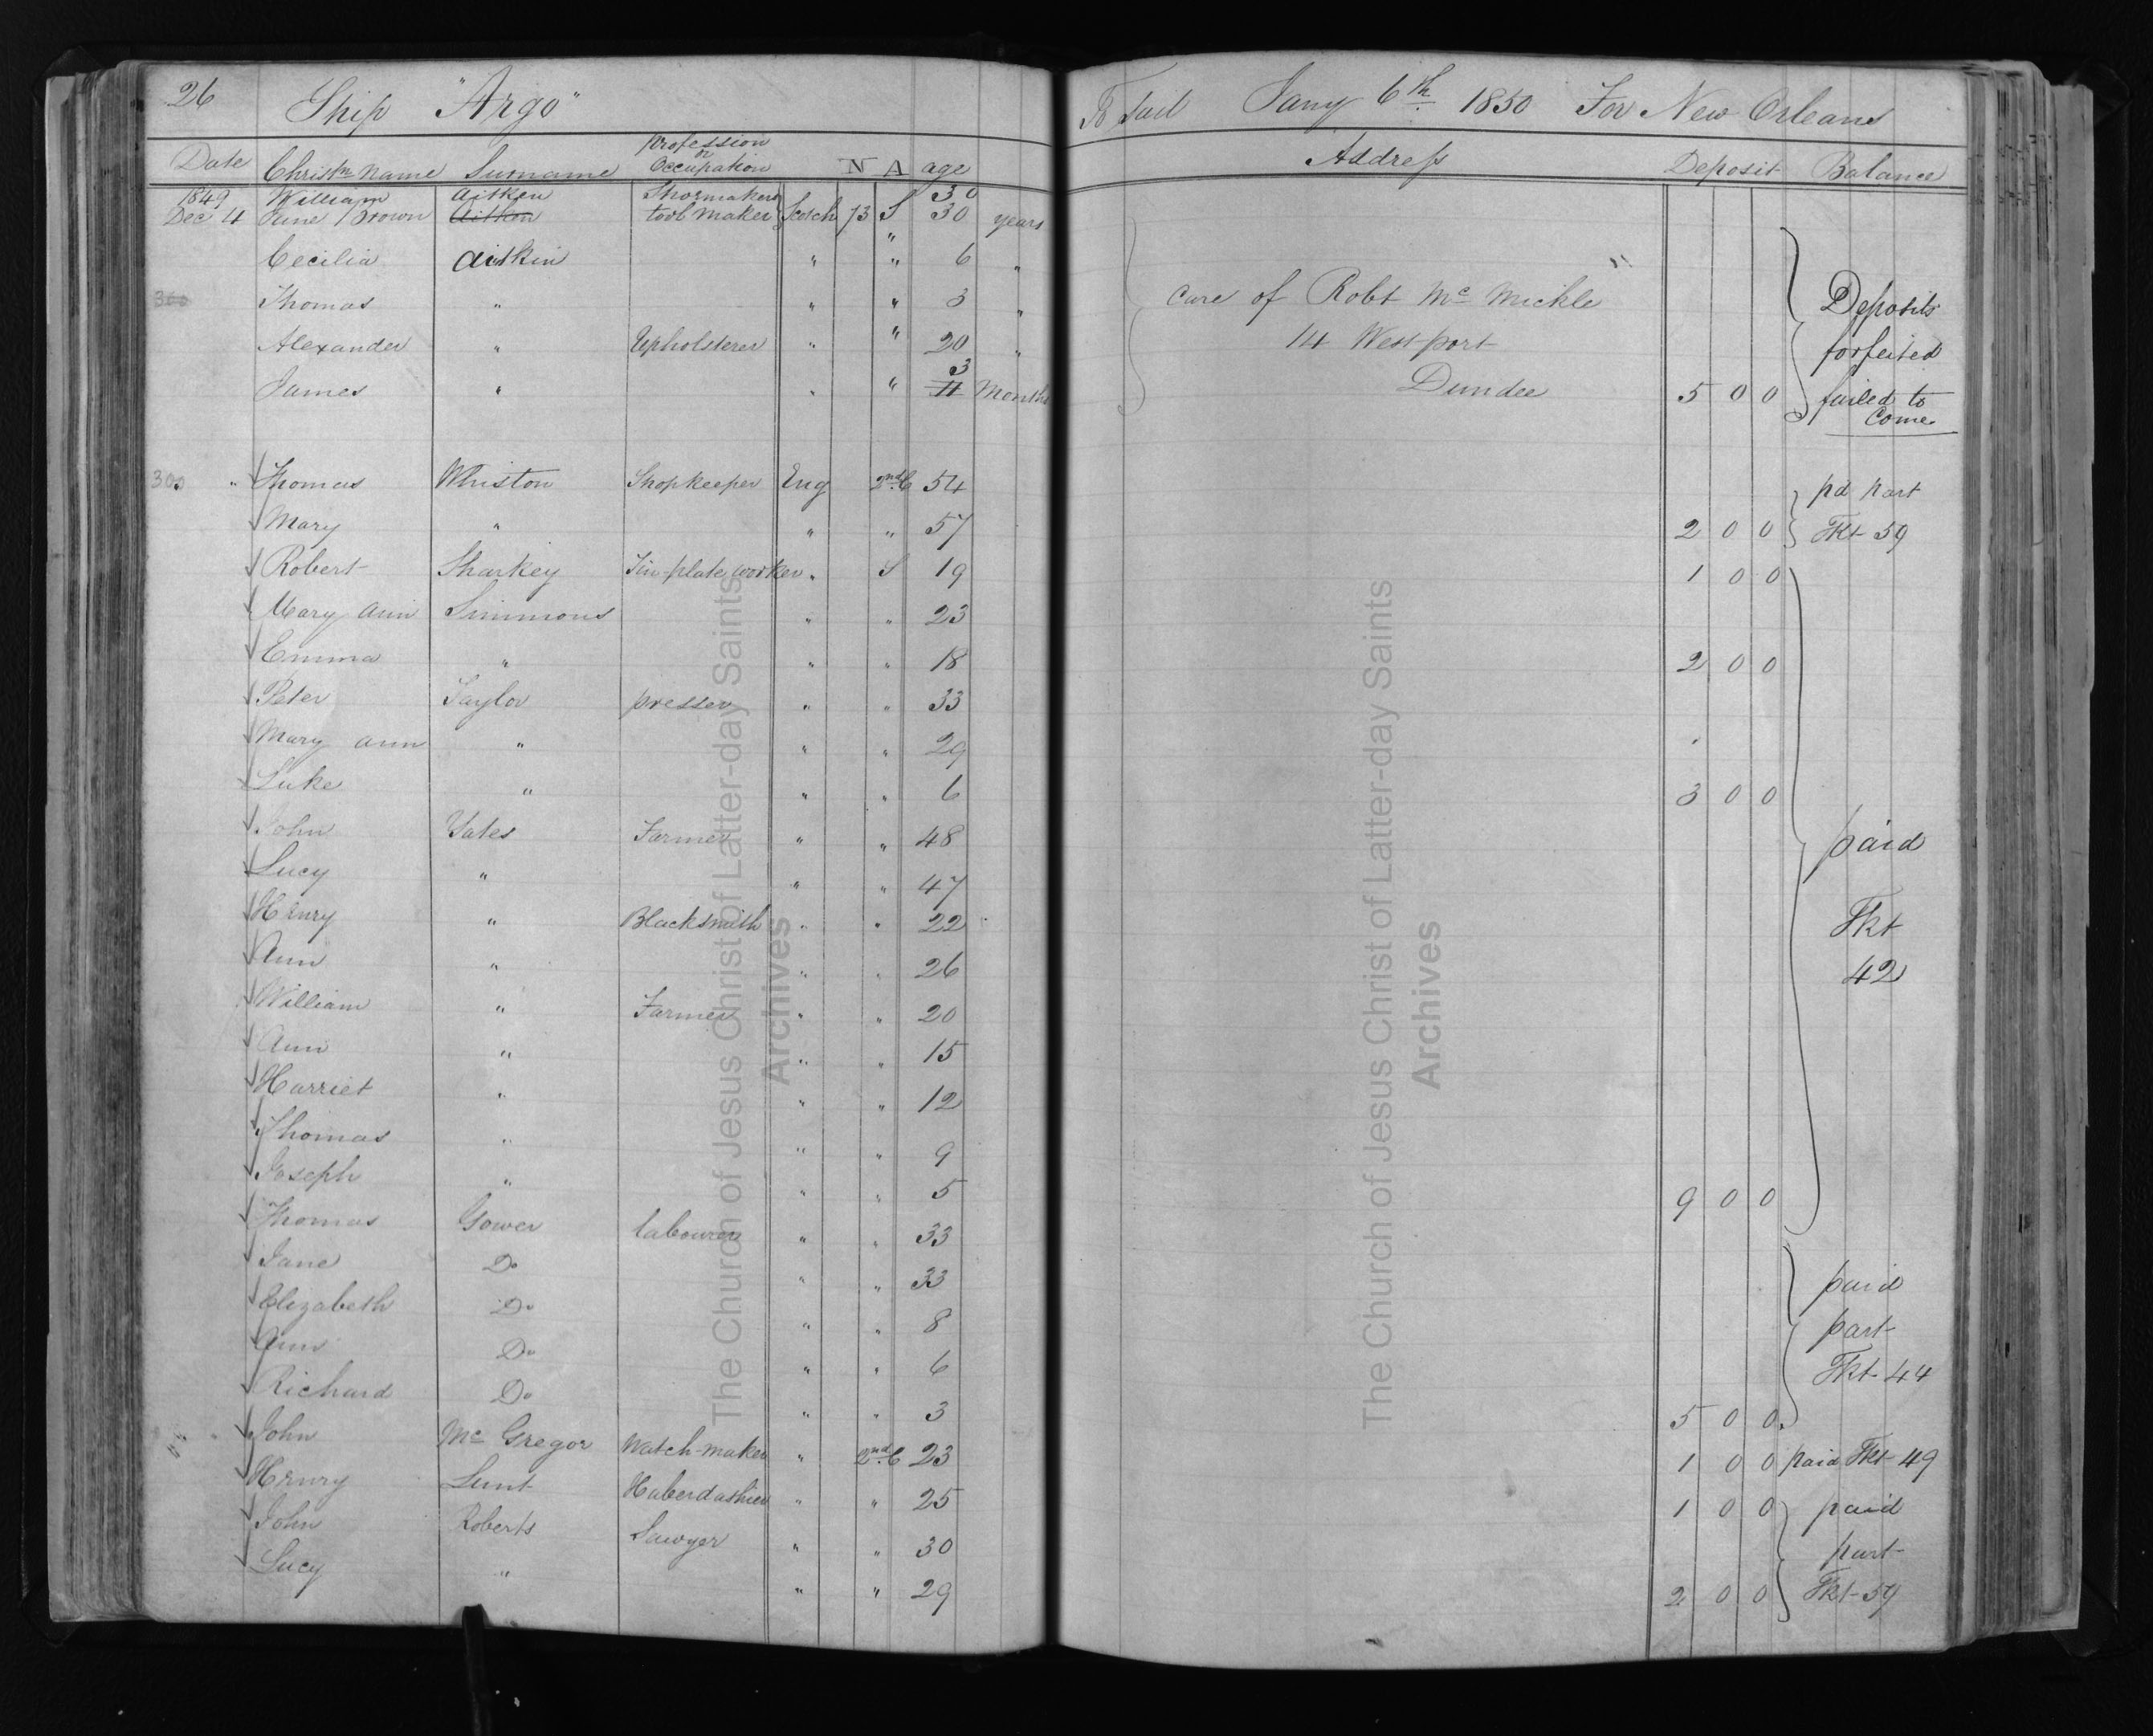 26 Ship "Argo" To Sail Jany 6th 1850 For New Orleans
Date Christn Name Surname Profession or Occupation N A age Address Deposit Balance
1849 William Aitken Shoemakers 30
Dec 4 June Brown Aitken tool maker Scotch 13 S 30 years
Cecilia Aitkin " " 6 "
300 Thomas " " " 3 " Care of Robt Mc Mickle Deposits
Alexander " Upholsterer " " 20 " 14 Westport forfeited
James " " " 3 11 Months Dundee 5 0 0 failed to Come
300 " Thomas Whiston Shopkeeper Eng 2nd C 54 pd part
Mary " " " 57 2 0 0 Tkt 59
Robert Sharkey Tin-plate worker " S 19 1 0 0
Mary Ann Simmons " " 23
Emma " " " 18 2 0 0
Peter Taylor presser " " 33
Mary Ann " " " 29
Luke " " " 6 3 0 0
John Yates Farmer " " 48 paid
Lucy " " " 47
Henry " Blacksmith " " 22 Tkt
Ann " " " 26 42
William " Farmer " " 20
Ann " " " 15
Harriet " " " 12
Thomas " " " 9
Joseph " " " 5 9 0 0
Thomas Gower labourer " " 33
Jane Do " " 33 paid
Elizabeth Do " " 8 part
Ann Do " " 6 Tkt 44
Richard Do " " 3 5 0 0
" John Mc Gregor Watch-maker " 2nd C 23 1 0 0 paid Tkt 49
Henry Lunt Haberdashier " " 25 1 0 0 paid
John Roberts Sawyer " " 30 part
Lucy " " " 29 2 0 0 Tkt 59
The Church of Jesus Christ of Latter-day Saints
Archives
The Church of Jesus Christ of Latter-day Saints
Archives